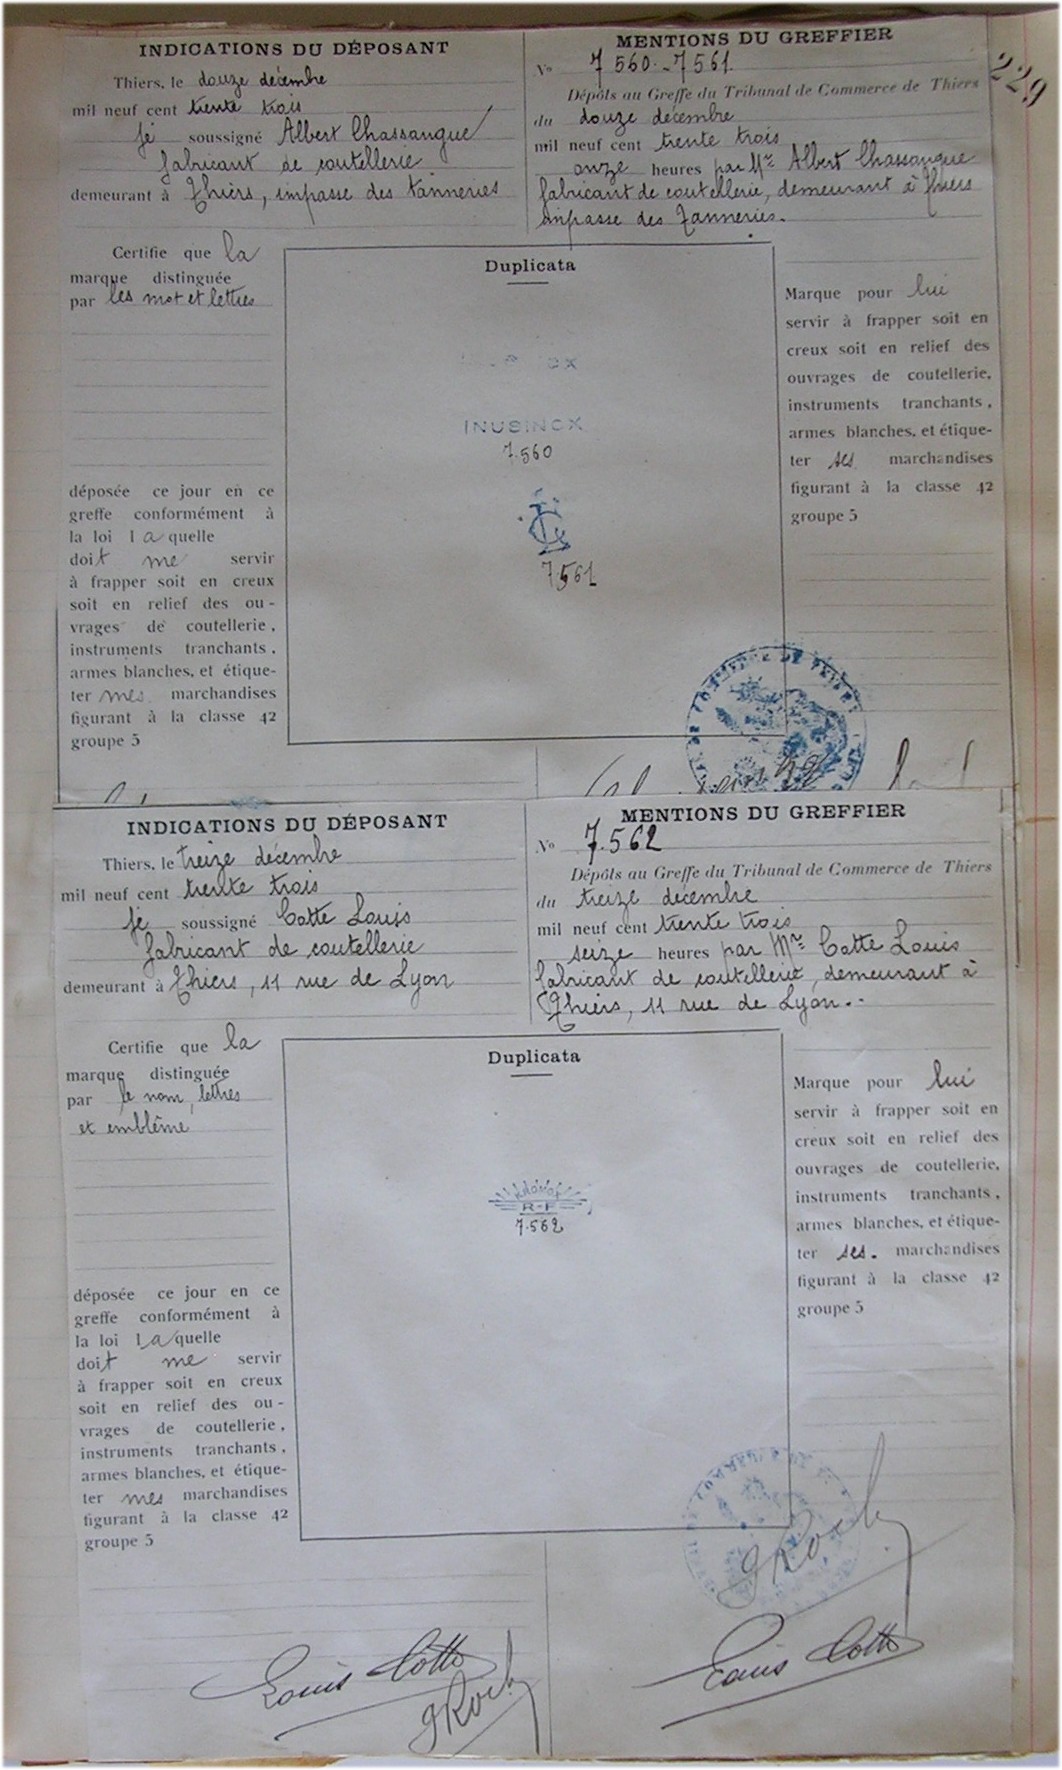 229
INDICATIONS DU DÉPOSANT
Thiers, le douze décembre
mil neuf cent trente trois
je soussigné Albert Chassangue
fabricant de coutellerie
demeurant à Thiers, impasse des tanneries
MENTIONS DU GREFFIER
No 7560-7561
Dépôts au Greffe du Tribunal de Commerce de Thiers
du douze décembre
mil neuf cent trente trois
onze heures par Mr Albert Chassangue
fabricant de coutellerie, demeurant à Thiers
impasse des Tanneries.
Certifie que la
marque distinguée
par les mot et lettres
déposée ce jour en ce
greffe conformément à
la loi laquelle
doit me servir
à frapper soit en creux
soit en relief des ou-
vrages de coutellerie,
instruments tranchants,
armes blanches, et étique-
ter mes marchandises
figurant à la classe 42
groupe 5
Duplicata
INUSINOX
7.560
7561
Marque pour lui
servir à frapper soit en
creux soit en relief des
ouvrages de coutellerie,
instruments tranchants,
armes blanches, et étique-
ter ses marchandises
figurant à la classe 42
groupe 5
INDICATIONS DU DÉPOSANT
Thiers, le treize décembre
mil neuf cent trente trois
je soussigné Cotte Louis
fabricant de coutellerie
demeurant à Thiers, 11 rue de Lyon
MENTIONS DU GREFFIER
No 7.562
Dépôts au Greffe du Tribunal de Commerce de Thiers
du treize décembre
mil neuf cent trente trois
seize heures par Mr Cotte Louis
fabricant de coutellerie, demeurant à
Thiers, 11 rue de Lyon.-
Certifie que la
marque distinguée
par le nom, lettres
et emblême
déposée ce jour en ce
greffe conformément à
la loi laquelle
doit me servir
à frapper soit en creux
soit en relief des ou-
vrages de coutellerie,
instruments tranchants,
armes blanches, et étique-
ter mes marchandises
figurant à la classe 42
groupe 5
Duplicata
R-F
7.562
Marque pour lui
servir à frapper soit en
creux soit en relief des
ouvrages de coutellerie,
instruments tranchants,
armes blanches, et étique-
ter ses. marchandises
figurant à la classe 42
groupe 5
Louis Cotte
Louis Cotte